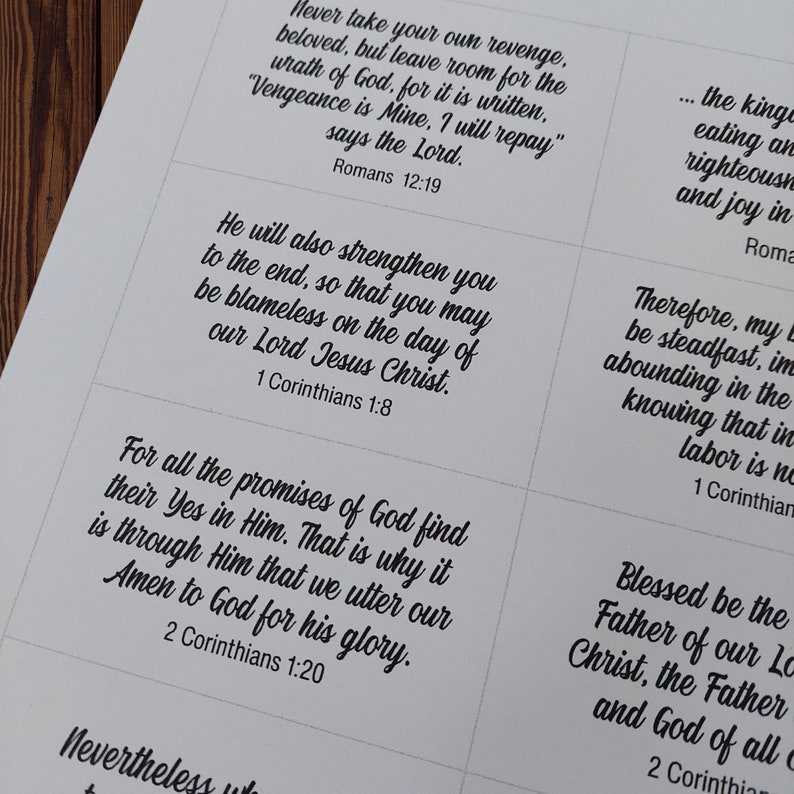 Never take your own revenge,
beloved, but leave room for the
wrath of God, for it is written,
"Vengeance is Mine, I will repay"
says the Lord.
Romans 12:19
... the
eating
and joy in
He will also strengthen you
to the end, so that you may
be blameless on the day of
our Lord Jesus Christ.
1 Corinthians 1:8
Therefore, my
be steadfast,
abounding in the
knowing that in
labor is
1
For all the promises of God find
their Yes in Him. That is why it
is through Him that we utter our
Amen to God for his glory.
2 Corinthians 1:20
Blessed be the
Father of our
Christ, the Father
and God of all
2
Nevertheless